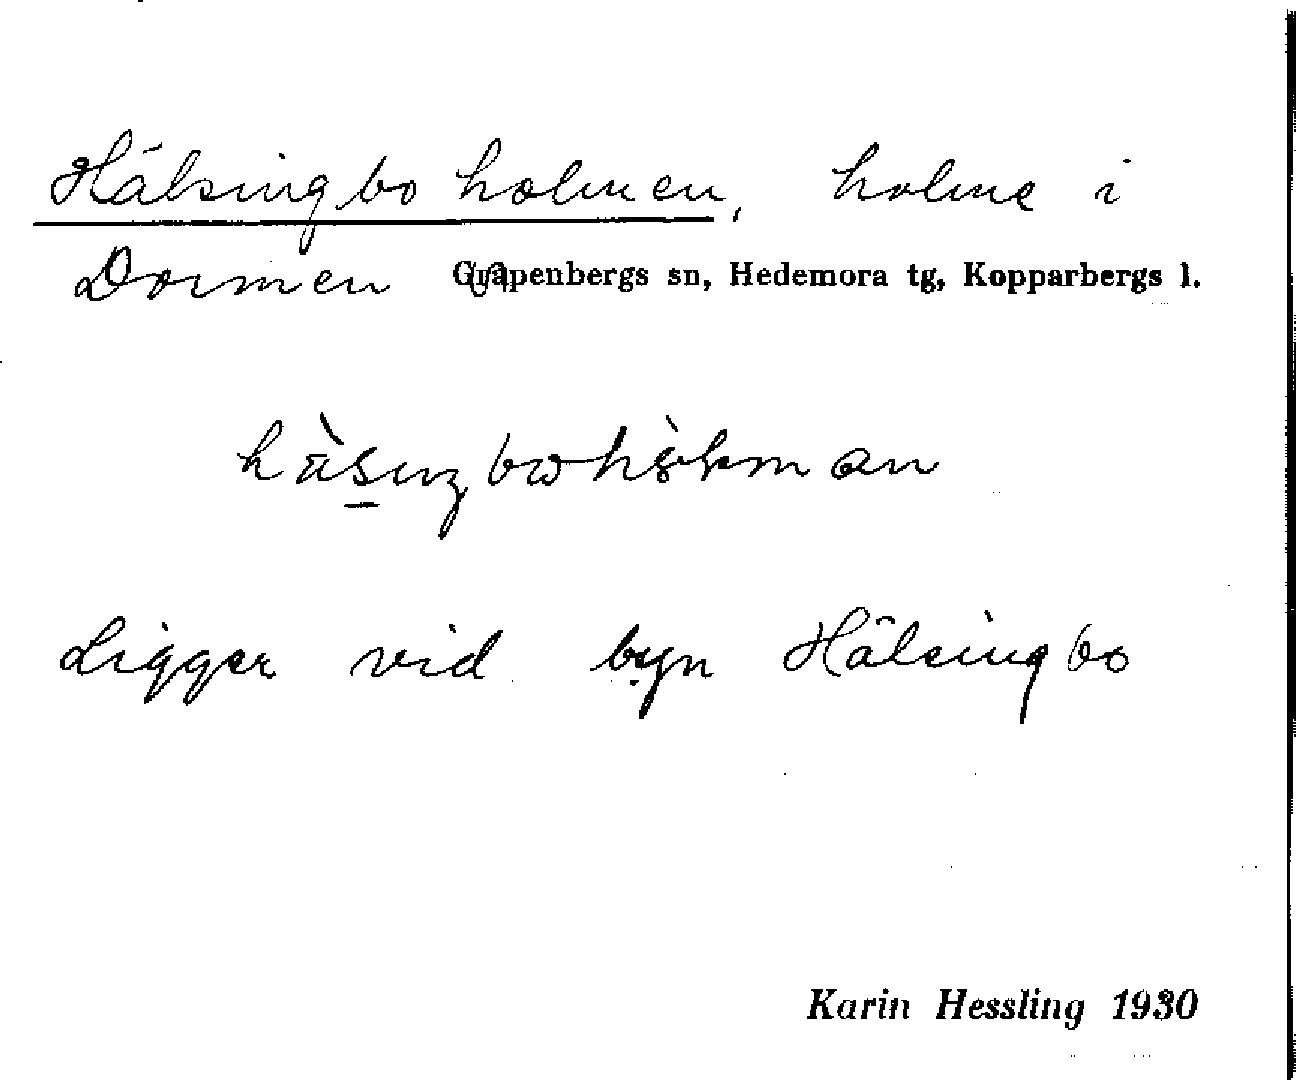 Hälsingboholmen, holme i
Dormen Grapenbergs sn, Hedemora tg, Kopparbergs l.
Ligger vid byn Hälsingbo
Karin Hessling 1930